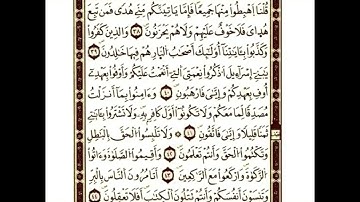 قُلْنَا ٱهْبِطُوا۟ مِنْهَا جَمِيعًا فَإِمَّا يَأْتِيَنَّكُم مِّنِّى هُدًى فَمَن تَبِعَ
هُدَاىَ فَلَا خَوْفٌ عَلَيْهِمْ وَلَا هُمْ يَحْزَنُونَ ٣٨ وَٱلَّذِينَ كَفَرُوا۟
وَكَذَّبُوا۟ بِـَٔايَـٰتِنَآ أُو۟لَـٰٓئِكَ أَصْحَـٰبُ ٱلنَّارِ هُمْ فِيهَا خَـٰلِدُونَ ٣٩
يَـٰبَنِىٓ إِسْرَٰٓءِيلَ ٱذْكُرُوا۟ نِعْمَتِىَ ٱلَّتِىٓ أَنْعَمْتُ عَلَيْكُمْ وَأَوْفُوا۟ بِعَهْدِىٓ
أُوفِ بِعَهْدِكُمْ وَإِيَّـٰىَ فَٱرْهَبُونِ ٤٠ وَءَامِنُوا۟ بِمَآ أَنزَلْتُ
مُصَدِّقًا لِّمَا مَعَكُمْ وَلَا تَكُونُوٓا۟ أَوَّلَ كَافِرٍۭ بِهِۦ وَلَا تَشْتَرُوا۟ بِـَٔايَـٰتِى
ثَمَنًا قَلِيلًا وَإِيَّـٰىَ فَٱتَّقُونِ ٤١ وَلَا تَلْبِسُوا۟ ٱلْحَقَّ بِٱلْبَـٰطِلِ
وَتَكْتُمُوا۟ ٱلْحَقَّ وَأَنتُمْ تَعْلَمُونَ ٤٢ وَأَقِيمُوا۟ ٱلصَّلَوٰةَ وَءَاتُوا۟
ٱلزَّكَوٰةَ وَٱرْكَعُوا۟ مَعَ ٱلرَّٰكِعِينَ ٤٣ أَتَأْمُرُونَ ٱلنَّاسَ بِٱلْبِرِّ
وَتَنسَوْنَ أَنفُسَكُمْ وَأَنتُمْ تَتْلُونَ ٱلْكِتَـٰبَ أَفَلَا تَعْقِلُونَ ٤٤